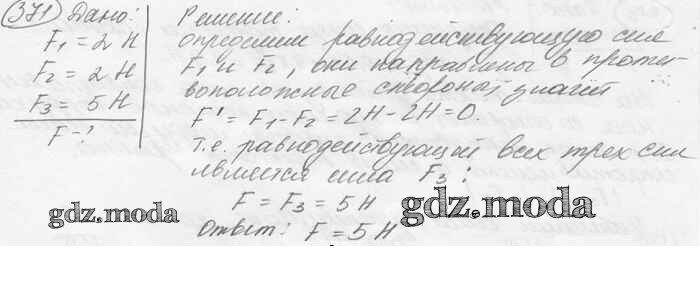 371 Дано:
F₁ = 2 Н
F₂ = 2 Н
F₃ = 5 Н
F - ?
Решение:
определим равнодействующую сил
F₁ и F₂, они направлены в проти-
воположные стороны, значит
F' = F₁ - F₂ = 2Н - 2Н = 0.
Т.е. равнодействующей всех трех сил
является сила F₃:
F = F₃ = 5 Н
Ответ: F = 5 Н
gdz.moda
gdz.moda